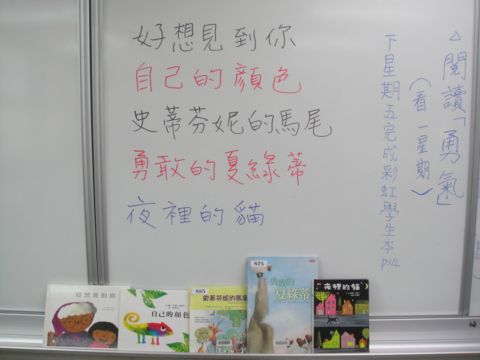 好想見到你
自己的顏色
史蒂芬妮的馬尾
勇敢的夏綠蒂
夜裡的貓
△閱讀「勇氣」
(看一星期)
下星期五完成彩虹學生本P.12
好想見到你
自己的顏色
史蒂芬妮的馬尾
勇敢的
夏綠蒂
夜裡的貓